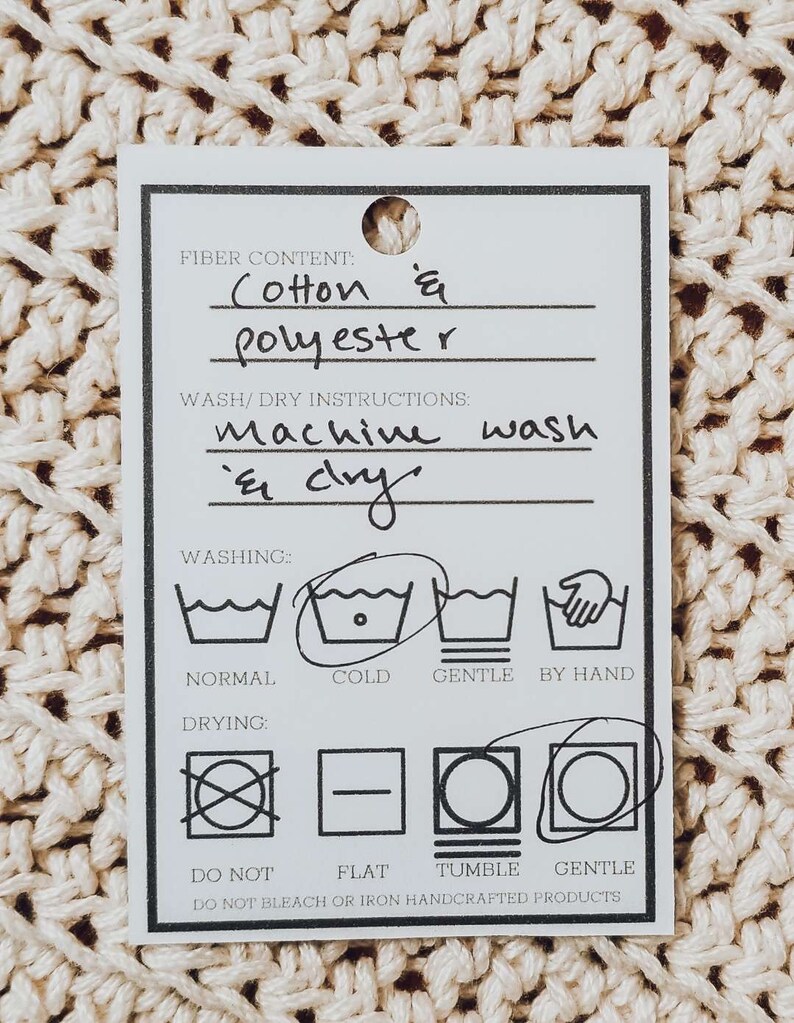 FIBER CONTENT:
Cotton &
polyester
WASH/ DRY INSTRUCTIONS:
Machine wash
& dry.
WASHING::
NORMAL COLD GENTLE BY HAND
DRYING:
DO NOT FLAT TUMBLE GENTLE
DO NOT BLEACH OR IRON HANDCRAFTED PRODUCTS